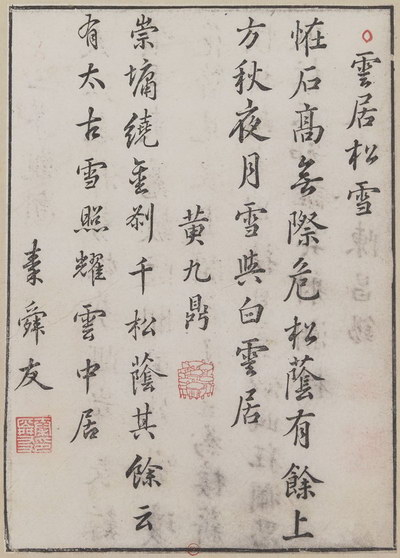 雲居松雪
恠石高無際危松蔭有餘上
方秋夜月雪與白雲居
黄九鼎
崇墉繞金刹千松蔭其餘云
有太古雪照耀雲中居
秦舜友